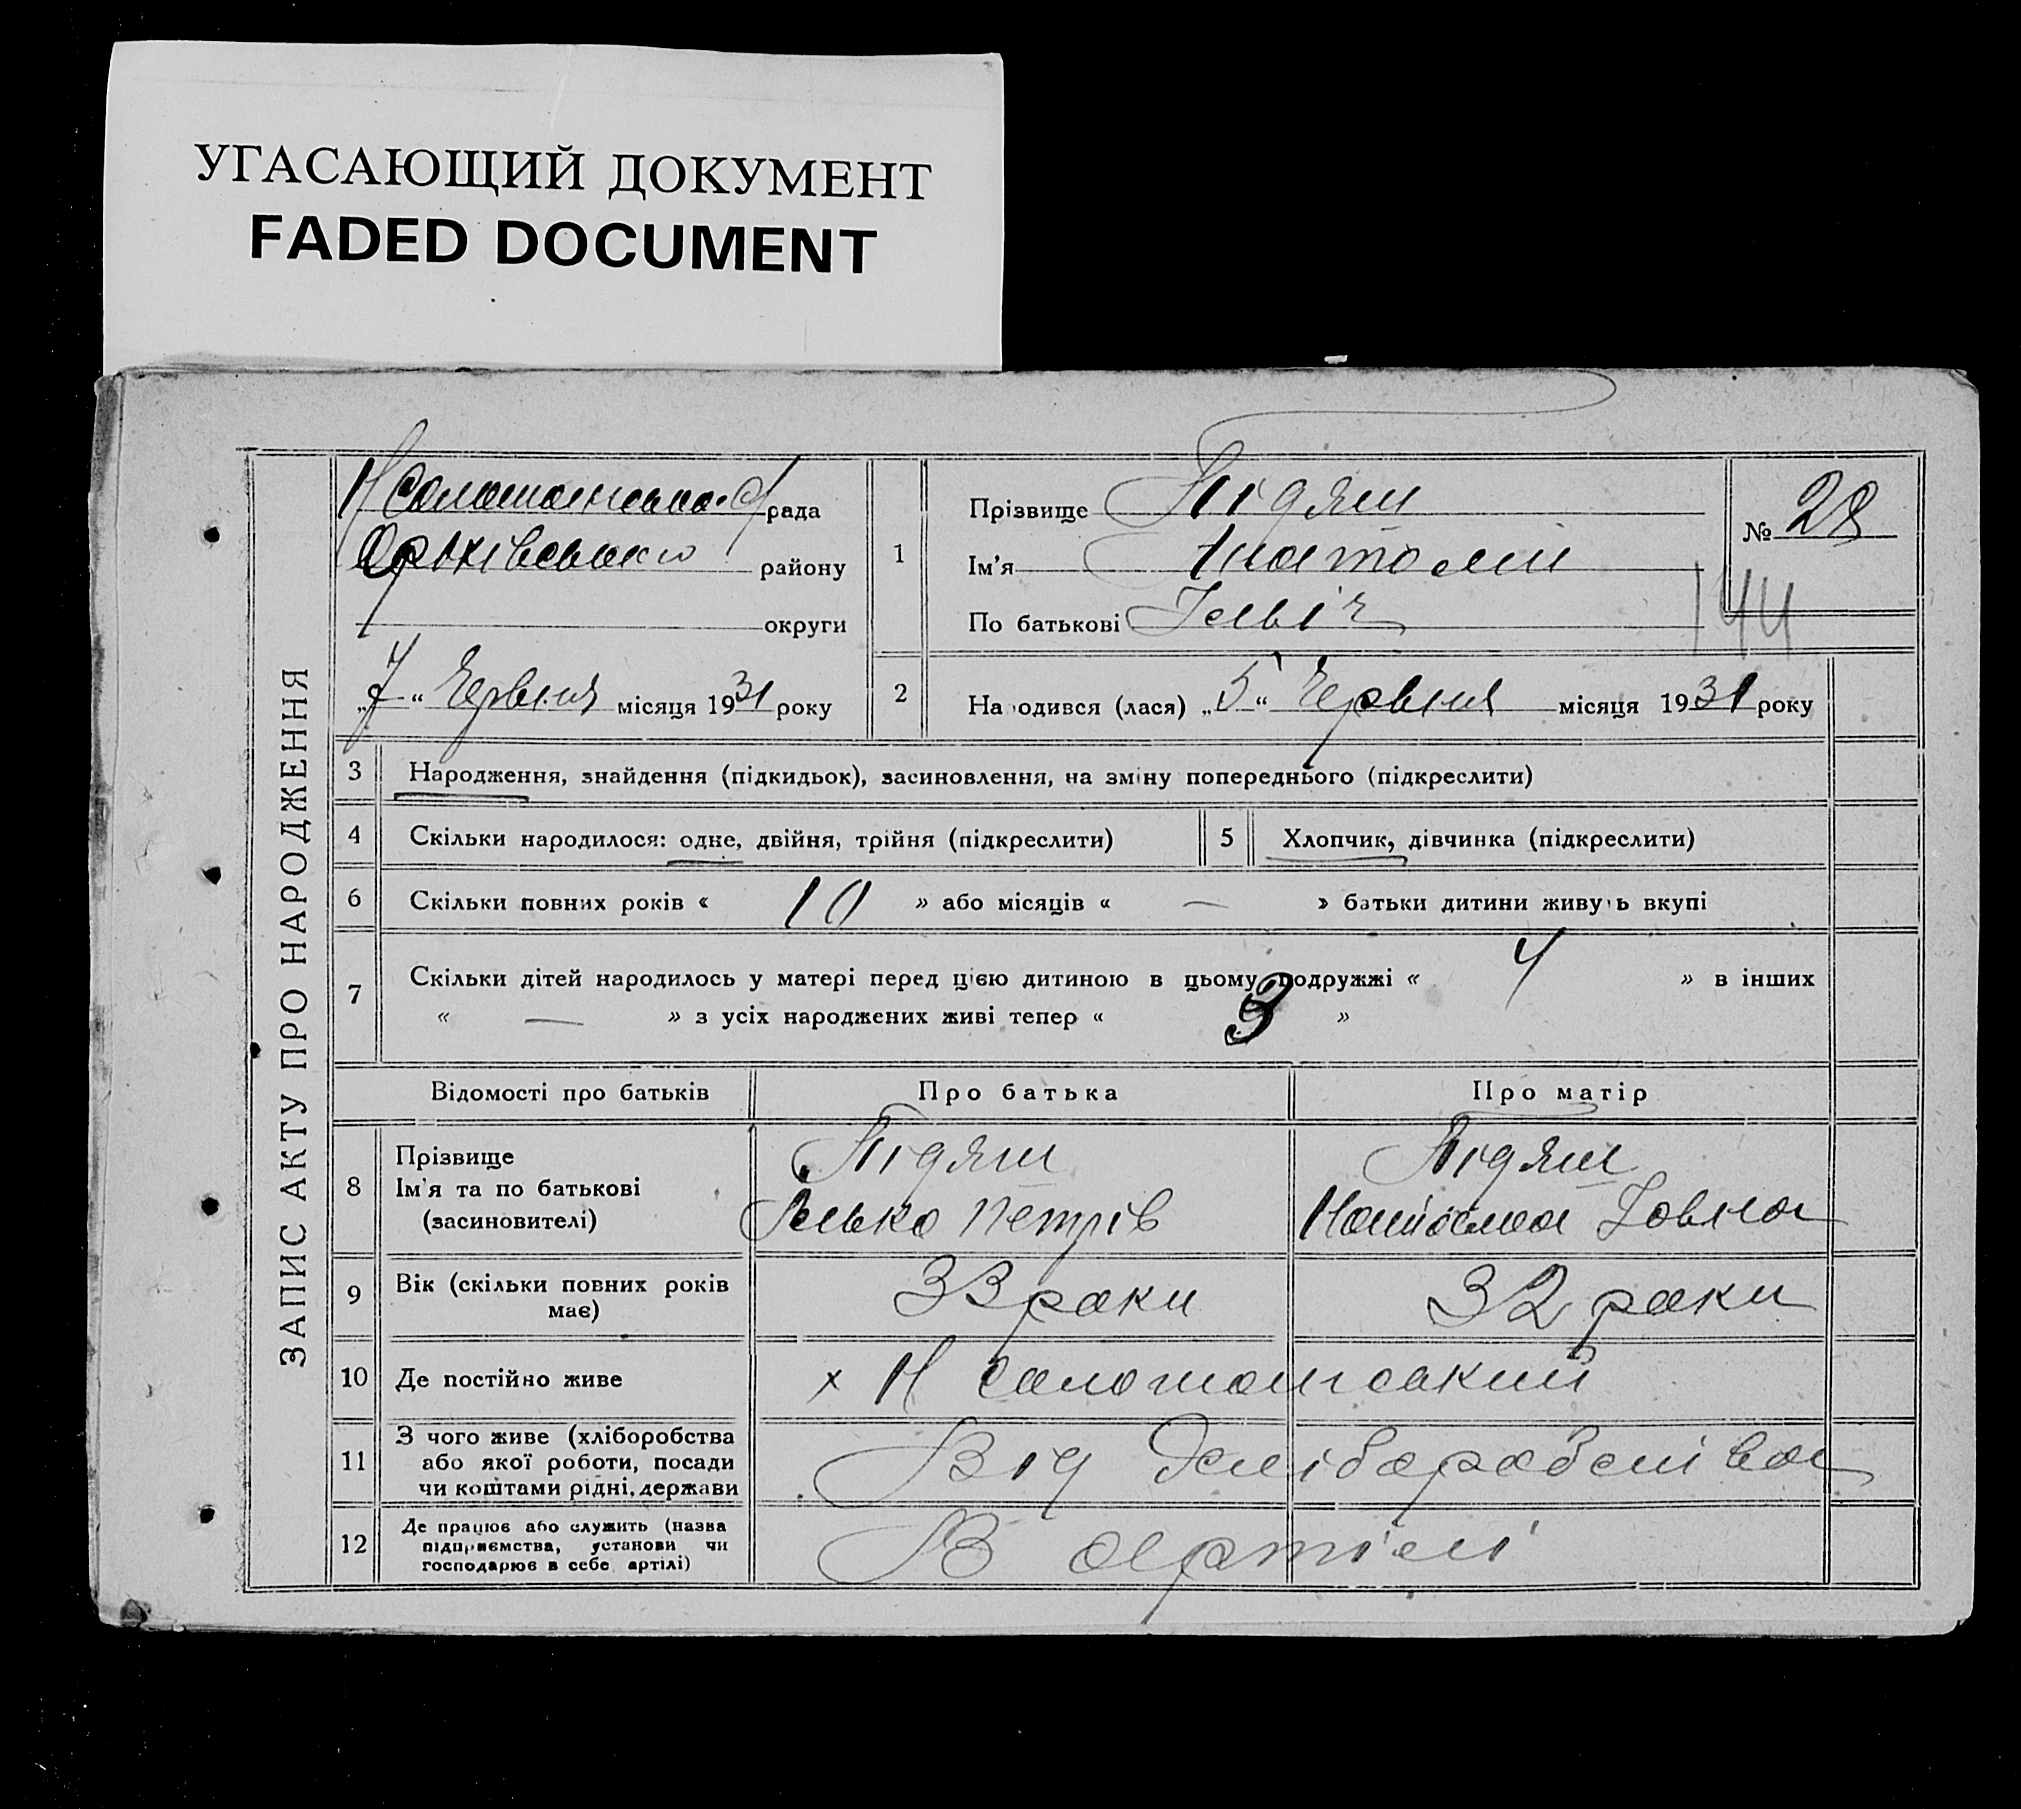 УГАСАЮЩИЙ ДОКУМЕНТ
FADED DOCUMENT
ЗАПИС АКТУ ПРО НАРОДЖЕННЯ
рада
району
округи
„7“ Червня місяця 1931 року
1
Прізвище Підяш
Ім'я Анатолій
По батькові Ільіч
№ 28
144
2
Народився (лася) „5“ Червня місяця 1931 року
3 Народження, знайдення (підкидьок), засиновлення, на зміну попереднього (підкреслити)
4 Скільки народилося: одне, двійня, трійня (підкреслити) 5 Хлопчик, дівчинка (підкреслити)
6 Скільки повних років « 10 » або місяців « — » батьки дитини живуть вкупі
7 Скільки дітей народилось у матері перед цією дитиною в цьому подружжі « 4 » в інших
« — » з усіх народжених живі тепер « 3 »
Відомості про батьків Про батька Про матір
8 Прізвище
Ім'я та по батькові
(засиновителі)
Підяш
Ілько Петрів
Підяш
9 Вік (скільки повних років
має)
33 роки 32 роки
10 Де постійно живе х Н Соломанський
11 З чого живе (хліборобства
або якої роботи, посади
чи коштами рідні, держави
Від
12 Де працює або служить (назва
підприємства, установи чи
господарює в себе артілі)
В артілі